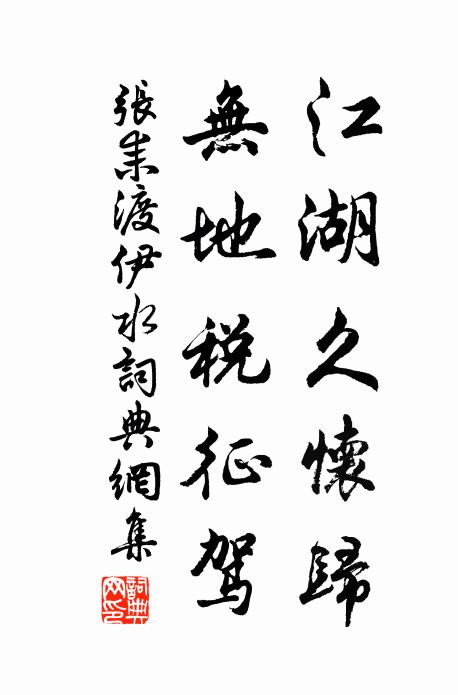 江湖久懷歸
無地税征駕
張耒渡伊水詞典網集
詞典網印